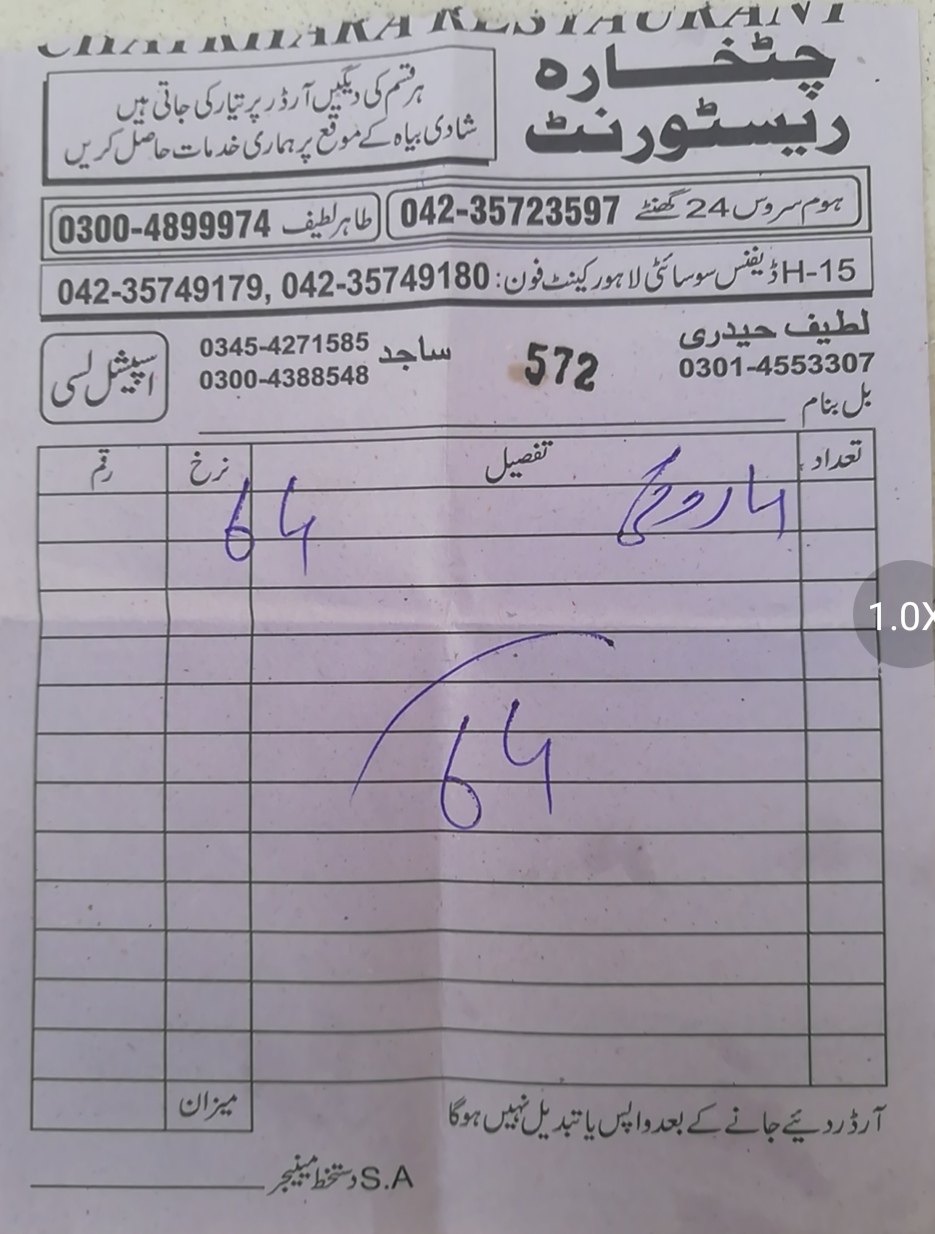 CHATKHARA RESTAURANT
چٹخارہ
ریسٹورنٹ
ہر قسم کی دیگیں آرڈر پر تیار کی جاتی ہیں
شادی بیاہ کے موقع پر ہماری خدمات حاصل کریں
ہوم سروس 24 گھنٹے 042-35723597
طاہر لطیف 0300-4899974
H-15 ڈیفنس سوسائٹی لاہور کینٹ فون: 042-35749179, 042-35749180
لطیف حیدری
0301-4553307
572
ساجد 0345-4271585
0300-4388548
اسپیشل لسی
بل بنام
تعداد تفصیل نرخ رقم
روٹی 64
64
میزان
آرڈر دیئے جانے کے بعد واپس یا تبدیل نہیں ہوگا
S.A دستخط مینیجر
1.0X